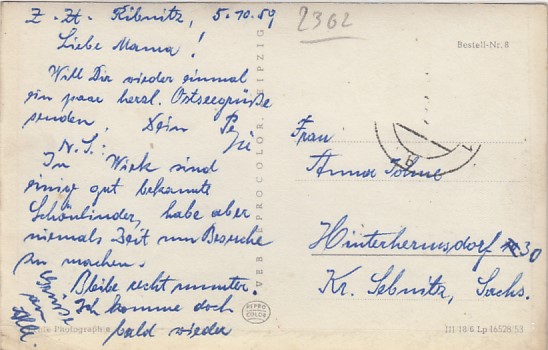 Z. Zt. Ribnitz, 5.10.59
2362
Liebe Mama!
Will Dir wieder einmal
ein paar herzl. Ostseegrüße
senden. Dein
N. S.:
In Wiek sind
einige gut bekannte
Schönlinder, habe aber
niemals Zeit um Besuche
zu machen.
Bleibe recht munter
Ich komme doch
bald wieder
Grüße
an
Alle.
Bestell-Nr. 8
Frau
Anna
Hinterhermsdorf 30
Kr. Sebnitz, Sachs.
VEB REPROCOLOR, LEIPZIG
REPRO
COLOR
Photographie
III/18/6 Lp 16528/53